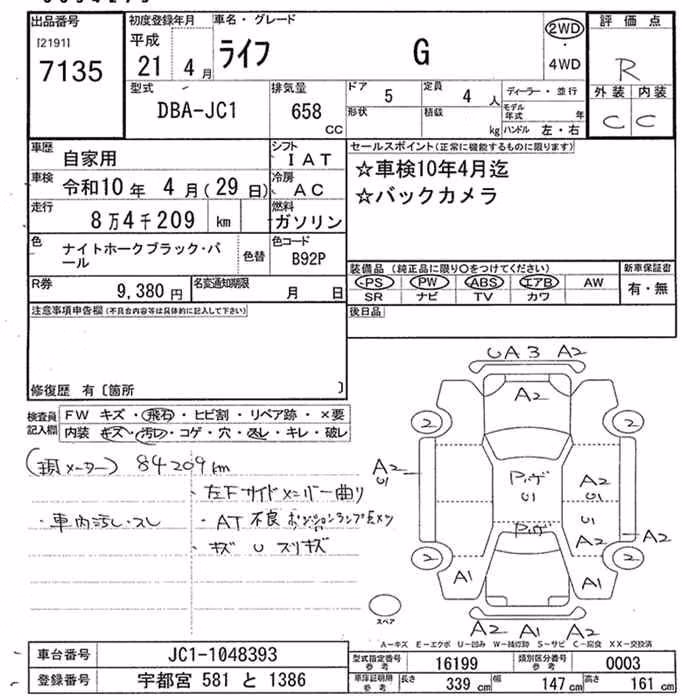 出品番号 初度登録年月 車名・グレード 評価点
[2191] 平成 ライフ G 2WD
7135 21 4月 ・4WD R
型式 排気量 ドア 5 定員 4人 ディーラー・並行 外装 内装
DBA-JC1 658 CC 形状 積載 kg モデル年式 年 C C
ハンドル 左・右
車歴 自家用 シフト IAT セールスポイント(正常に機能するものに限ります)
車検 令和10年 4月(29日) 冷房 AC ☆車検10年4月迄
走行 8万4千209 km 燃料 ガソリン ☆バックカメラ
色 ナイトホークブラック・パール 色替 色コード B92P
装備品(純正品に限り○をつけてください) 新車保証書
R券 9,380円 名変通知期限 月 日 PS PW ABS エアB AW 有・無
SR ナビ TV カワ
注意事項申告欄(不具合内容等は具体的に記入して下さい) 後日品
修復歴 有〔箇所 〕
検査員記入欄 FW キズ・飛石・ヒビ割・リペア跡・×要
内装 キズ・汚れ・コゲ・穴・スレ・キレ・破レ
(現メーター) 84209km
・左Fサイドメンバー曲り
・車内汚レ・スレ ・AT不良 ポジションランプ点メツ
・キズ U スリキズ
UA3 A2
A2
2 2
A2 U1 ルーフ U1 A2 U1
U1
A2 A2
2 2
A1 A1
スペア
A2 A1 A2
A-キズ E-エクボ U-凹み W-補修跡 S-サビ C-腐食 XX-交換済
車台番号 JC1-1048393 型式指定番号 参考 16199 類別区分番号 参考 0003
登録番号 宇都宮 581 と 1386 車庫証明用 参考 長さ 339cm 幅 147cm 高さ 161cm